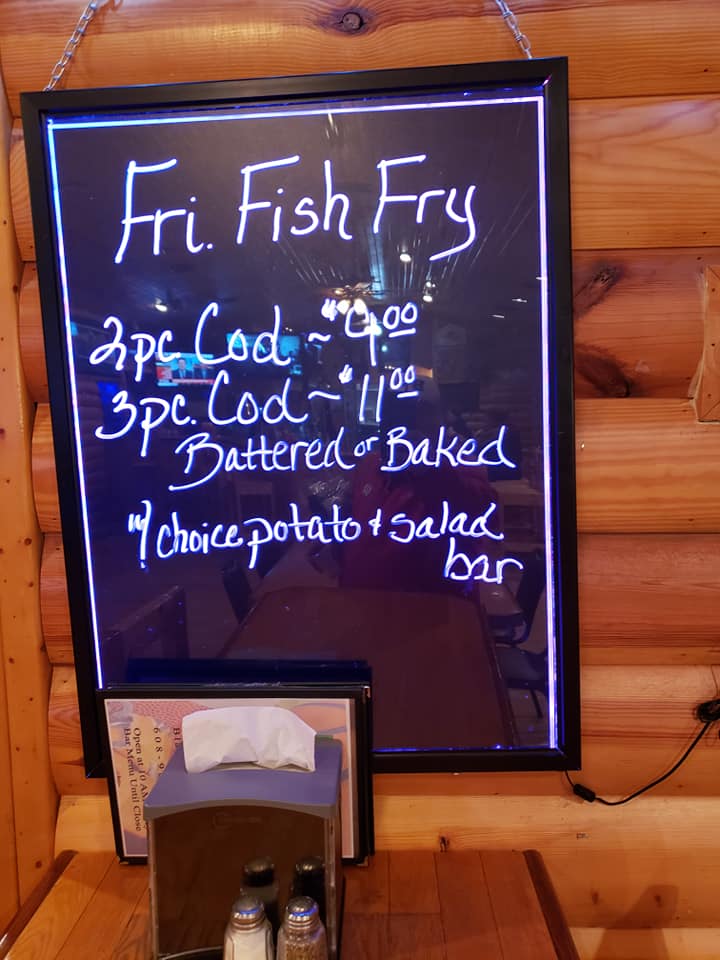 Fri. Fish Fry
2pc. Cod ~ $9.00
3pc. Cod ~ $11.00
Battered or Baked
w/ choice potato & salad
bar
608-9
Open at 10 AM
Bar Menu Until Close